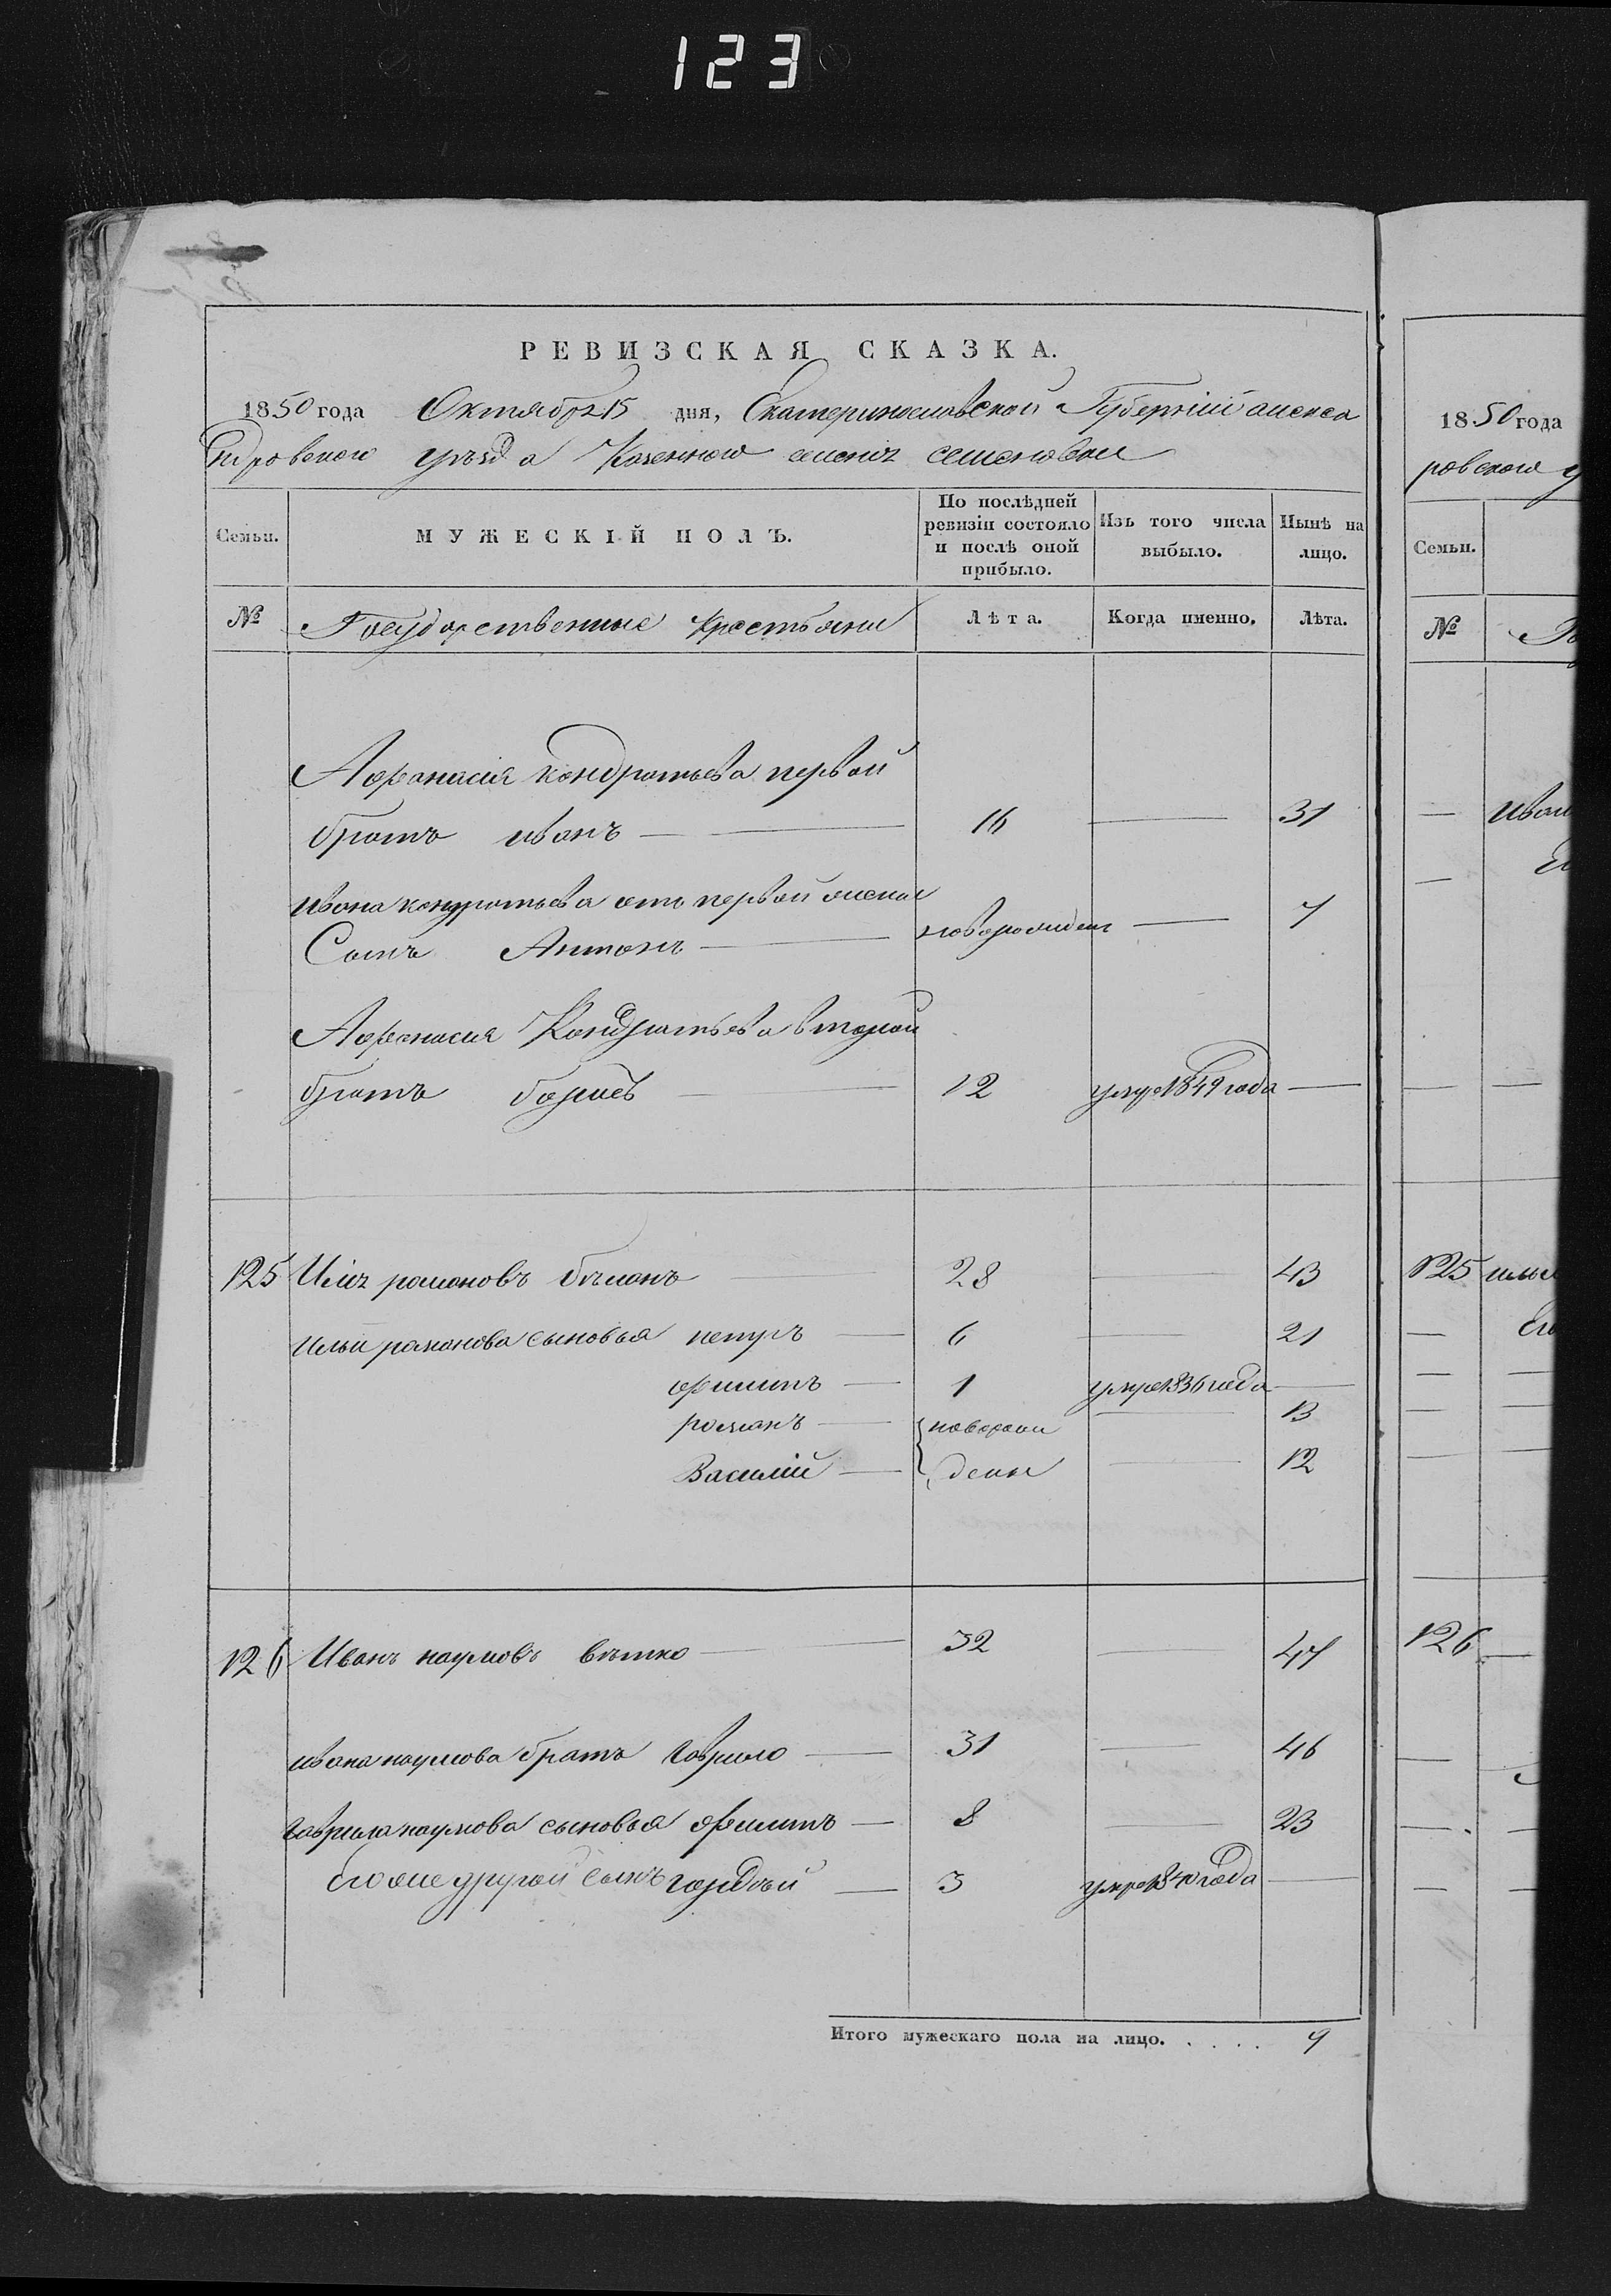 123
РЕВИЗСКАЯ СКАЗКА.
1850 года Октября 15 дня, Екатеринославской Губернiи алекса
ндровского уѣзда Казенного селенiя семеновки
Семьи. МУЖЕСКIЙ ПОЛЪ. По послѣдней ревизiи состояло и послѣ оной прибыло. Изъ того числа выбыло. Нынѣ на лицо.
№ Государственные крестьяни Лѣта. Когда именно. Лѣта.
Афанасiя кондратьева первой
братъ иванъ — 16 — 31
ивана кондратьева отъ первой жены
Сынъ Антонъ — новорожден — 7
Афанасия Кондратьева второй
братъ борисъ — 12 умре 1849 года —
125 Илiя романовъ биланъ — 28 — 43
Ильи романова сыновья петръ — 6 — 21
филипъ — 1 умре 1836 года —
романъ — новорож — 13
Василiй — дены — 12
126 Иванъ наумовъ витко — 32 — 47
ивана наумова братъ гаврило — 31 — 46
гаврила наумова сыновья филипъ — 8 — 23
Его же другой сынъ гордѣй — 3 умре 1840 года —
Итого мужескаго пола на лицо. . . . . 9
1850 года
ровского у
Семьи.
№
— Иван
125 илья
Его
126